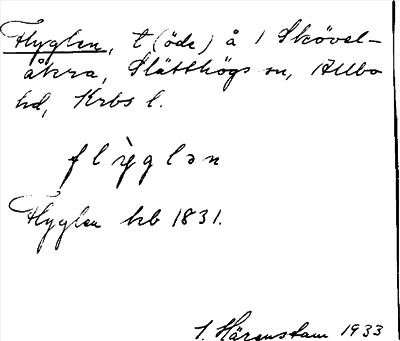 Flyglen, t (öde) å 1 Skövel-
åkra, Slätthögs sn, Allbo
hd, Krbs l.
flỳglən
Flyglen hb 1831.
S. Härenstam 1933